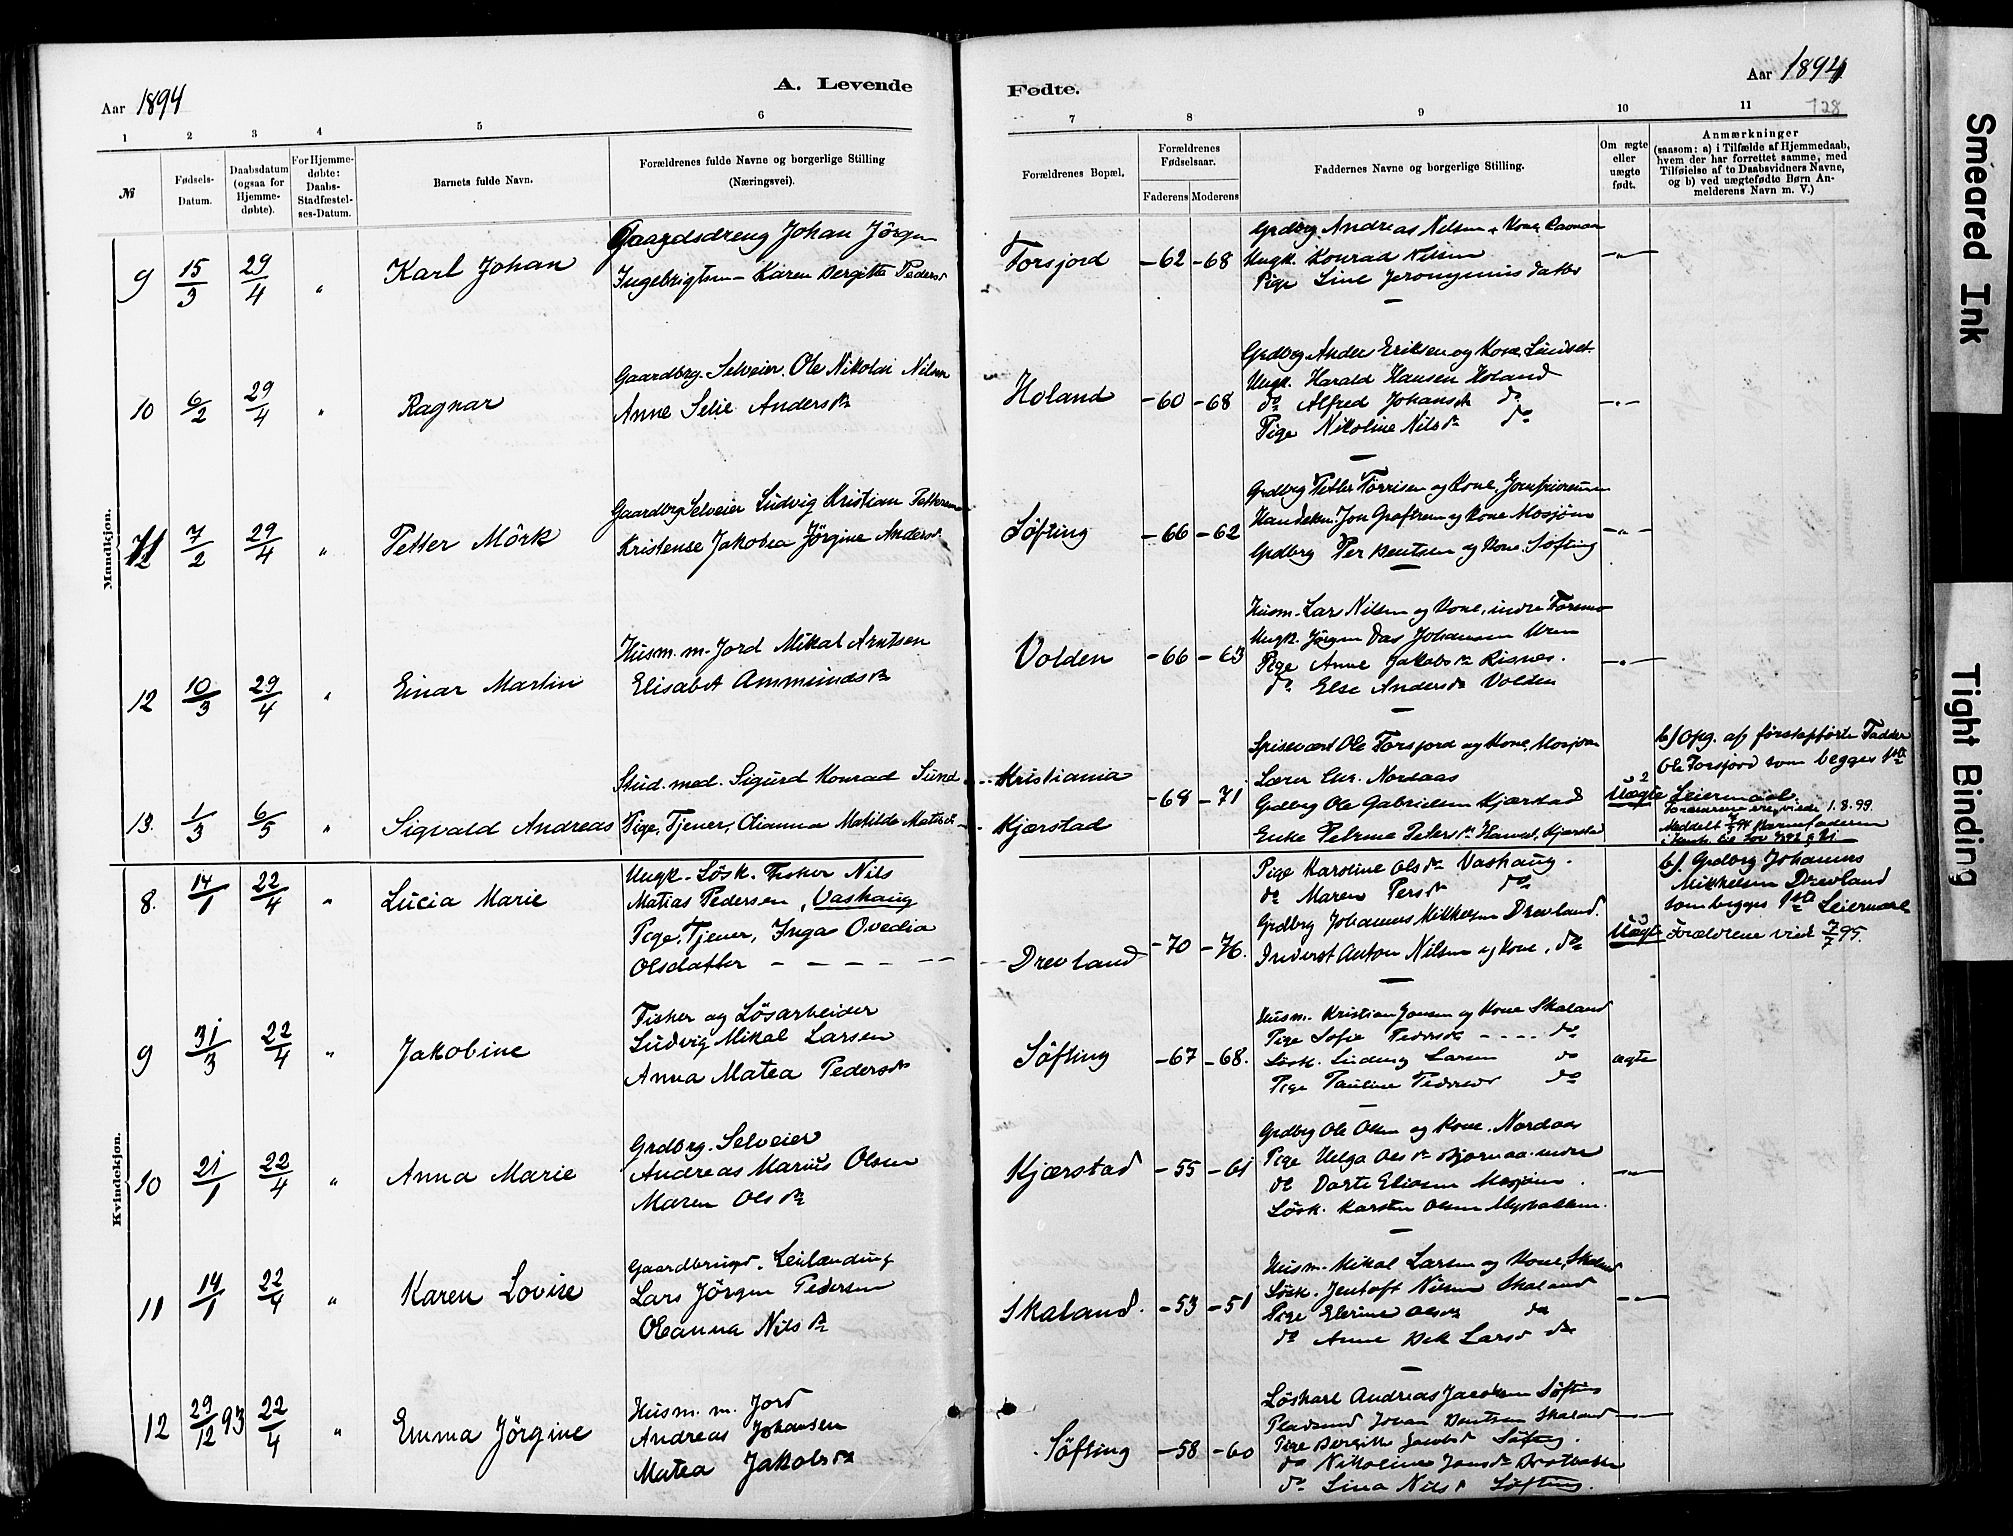 Aar 1894
A. Levende
Fødte.
Aar 1894
128
1 2 3 4 5 6 7 8 9 10 11
№
Fødsels-Datum.
Daabsdatum (ogsaa for Hjemme-døbte).
For Hjemme-døbte: Daabs-Stadfæstel-ses-Datum.
Barnets fulde Navn.
Forældrenes fulde Navne og borgerlige Stilling (Næringsvei).
Forældrenes Bopæl.
Forældrenes Fødselsaar.
Faderens Moderens
Faddernes Navne og borgerlige Stilling.
Om ægte eller uægte født.
Anmærkninger
(saasom: a) i Tilfælde af Hjemmedaab, hvem der har forrettet samme, med Tilføielse af to Daabsvidners Navne, og b) ved uægtefødte Børn An-melderens Navn m. V.)
Mandkjøn.
9 15/3 29/4 " Karl Johan
Gaardsdreng Johan Jörgen
Ingebrigtsen – Karen Bergitte Pedersd
Forsjord -62 -68
Grdbrg. Andreas Nilsen & Kone
Ungk. Konrad Nilsen
Pige Line Jeronymus datter
10 6/2 29/4 " Ragnar
Gaardbrg. Selveier. Ole Nikolai Nilsen
Anne Selie Andersdr
Holand -60 -68
Grdbrg Anders Eriksen og Kone
Ungk. Harald Hansen Holand
do Alfred Johansen do
Pige Nikoline Nilsdr do
11 7/2 29/4 " Petter Mörk
Gaardbrg Selveier Ludvig Kristian Pettersen
Kristense Jakobea Jörgine Andersd.
Søfting -66 -62
Grdbrg Petter Torrisen og Kone
Handelsm. Jon Graftrem og Kone Mosjøen
Grdbrg Per Bentsen og Kone Søfting
12 10/3 29/4 " Einar Martin
Husm. m. Jord Mikal Arntsen
Elisabet Ammundsdr
Volden -66 -63
Husm. Lars Nilsen og Kone, indre Forsmo
Ungk. Jörgen Das Johansen
Pige Anne Jakobsdr Risnes.
do Else Andersdr Volden
13. 1/3 6/5 " Sigvald Andreas
Stud. med. Sigurd Konrad Sund
Pige, Tjener, Dianna Matilde
Kristiania
Kjærstad
-68 -71
Spisevært Ole Forsjord og Kone, Mosjøen
Lærer Chr. Nordaas
Grdbrg Ole Gabrielsen Kjærstad
Enke Petrine Petersdr Kjærstad
Uægte
b) Opg. af førstopførte Fadder
Ole Forsjord som begges 1ste
Leiermaal
Kvindekjøn.
8. 14/1 22/4 " Lucia Marie
Ungk. Løsk. Fisker Nils
Matias Pedersen, Vashaug
Pige, Tjener, Inga Ovedia
Olsdatter
Drevland -70 -76.
Pige Karoline Olsdr Vashaug.
do Maren Persdr do
Grdbrg Johannes Mikkelsen Drevland.
Inderst Anton Nilsen og Kone, do
Uægte
b). Grdbrg Johannes
Mikkelsen Drevland
som begges 1ste Leiermaal
Forældrene viet 7/7 95.
9 31/3 22/4 " Jakobine
Fisker og Løsarbeider
Ludvig Mikal Larsen
Anna Matea Pedersdr
Søfting -67 -68.
Husm. Kristian Jensen og Kone Skaland
Pige Sofie Pedersdr do
Løsk. Ludvig Larsen do
Pige Pauline Pedersdr do
ægte
10 21/1 22/4 " Anna Marie
Grdbrg. Selveier
Andreas Marius Olsen
Maren Olsdr
Kjærstad -55 -61
Grdbrg Ole Olsen og Kone. Nordaas
Pige Helga Olsdr Bjornaa indre
do Dorte Eliasen Mosjøen.
Løsk. Karsten Olsen Myrbakken.
11 14/1 22/4 " Karen Lovise
Gaardbruger. Leilænding
Lars Jörgen Pedersen
Oleanna Nilsdr
Skaland. -53 -51
Husm. Mikal Larsen og Kone, Skaland
Løsk. Jentoft Nilsen Skaland
Pige Elerine Olsdr do
do Anne Larsd do
12 29/12 93 22/4 " Emma Jörgine
Husm. m. Jord
Andreas Johansen
Matea Jakobsdr
Søfting -58 -60
Løskarl Andreas Jacobsen Søfting
Johan Bentsen Skaland
Pige Bergitte Jacobsd Søfting.
do Nikoline Jonsdr
do Lina Nilsd Søfting.
Smeared Ink
Tight Binding